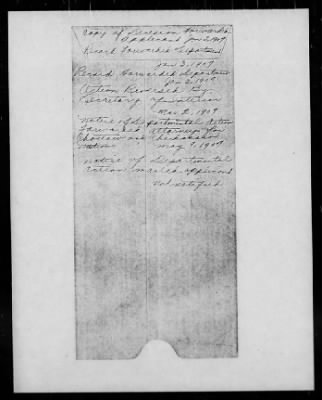 Copy of Decision forwarded
applicant Jan 2, 1907
Record forwarded Department
Jan 3, 1907
Record forwarded Department
Jan 2, 1907
Action Reversed by
Secretary of Interior
Mar 2, 1907
Notice of Departmental Action
forwarded attorneys for
Choctaw and Chickasaw
Nations May 7, 1907
Notice of Departmental
action mailed applicant